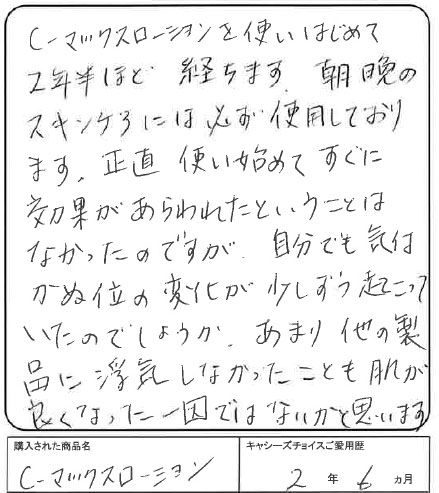 C-マックスローションを使いはじめて
2年半ほど 経ちます. 朝晩の
スキンケアには必ず使用しており
ます. 正直 使い始めて すぐに
効果があらわれたということは
なかったのですが. 自分でも気付
かぬ位の 変化が 少しずつ起こって
いたのでしょうか. あまり 他の製
品に 浮気 しなかったことも 肌が
良くなった一因ではないかと思います
購入された商品名
C-マックスローション
キャシーズチョイスご愛用歴
2 年 6 ヵ月